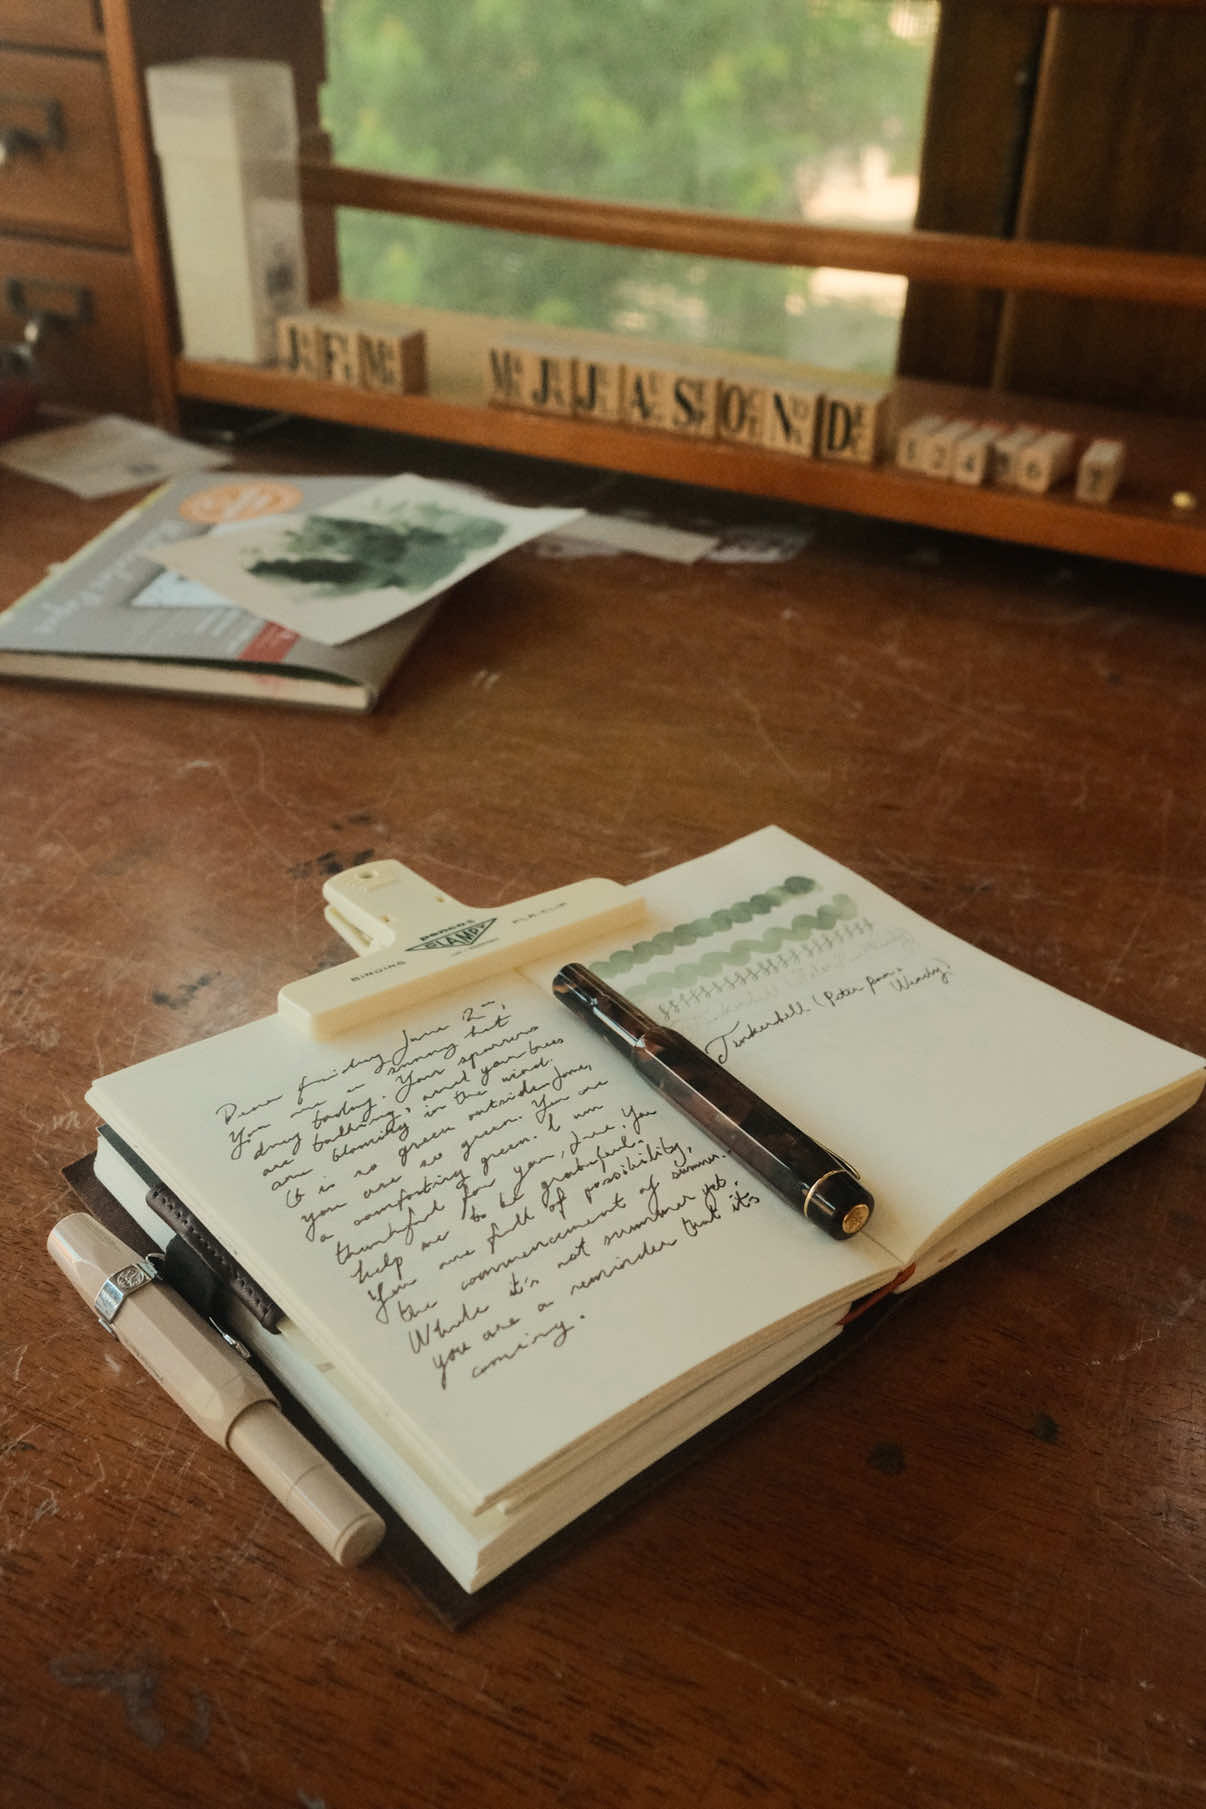 J F M
M J J A S O N D
1 2 4 5 6 7
penco
CLAMPY
BINDING
PLA-CLIP
Dear Friday June 2nd,
You are a sunny hot
day today. Your sparrows
are bathing, and your trees
are blowing in the wind.
It is so green outside June,
you are so green. You are
a comforting green. I am
thankful for you, June. You
help me to be grateful.
You are full of possibility,
the commencement of summer.
While it's not summer yet,
you are a reminder that it's
coming.
Tinkerbell (Peter Pan &
Wendy)